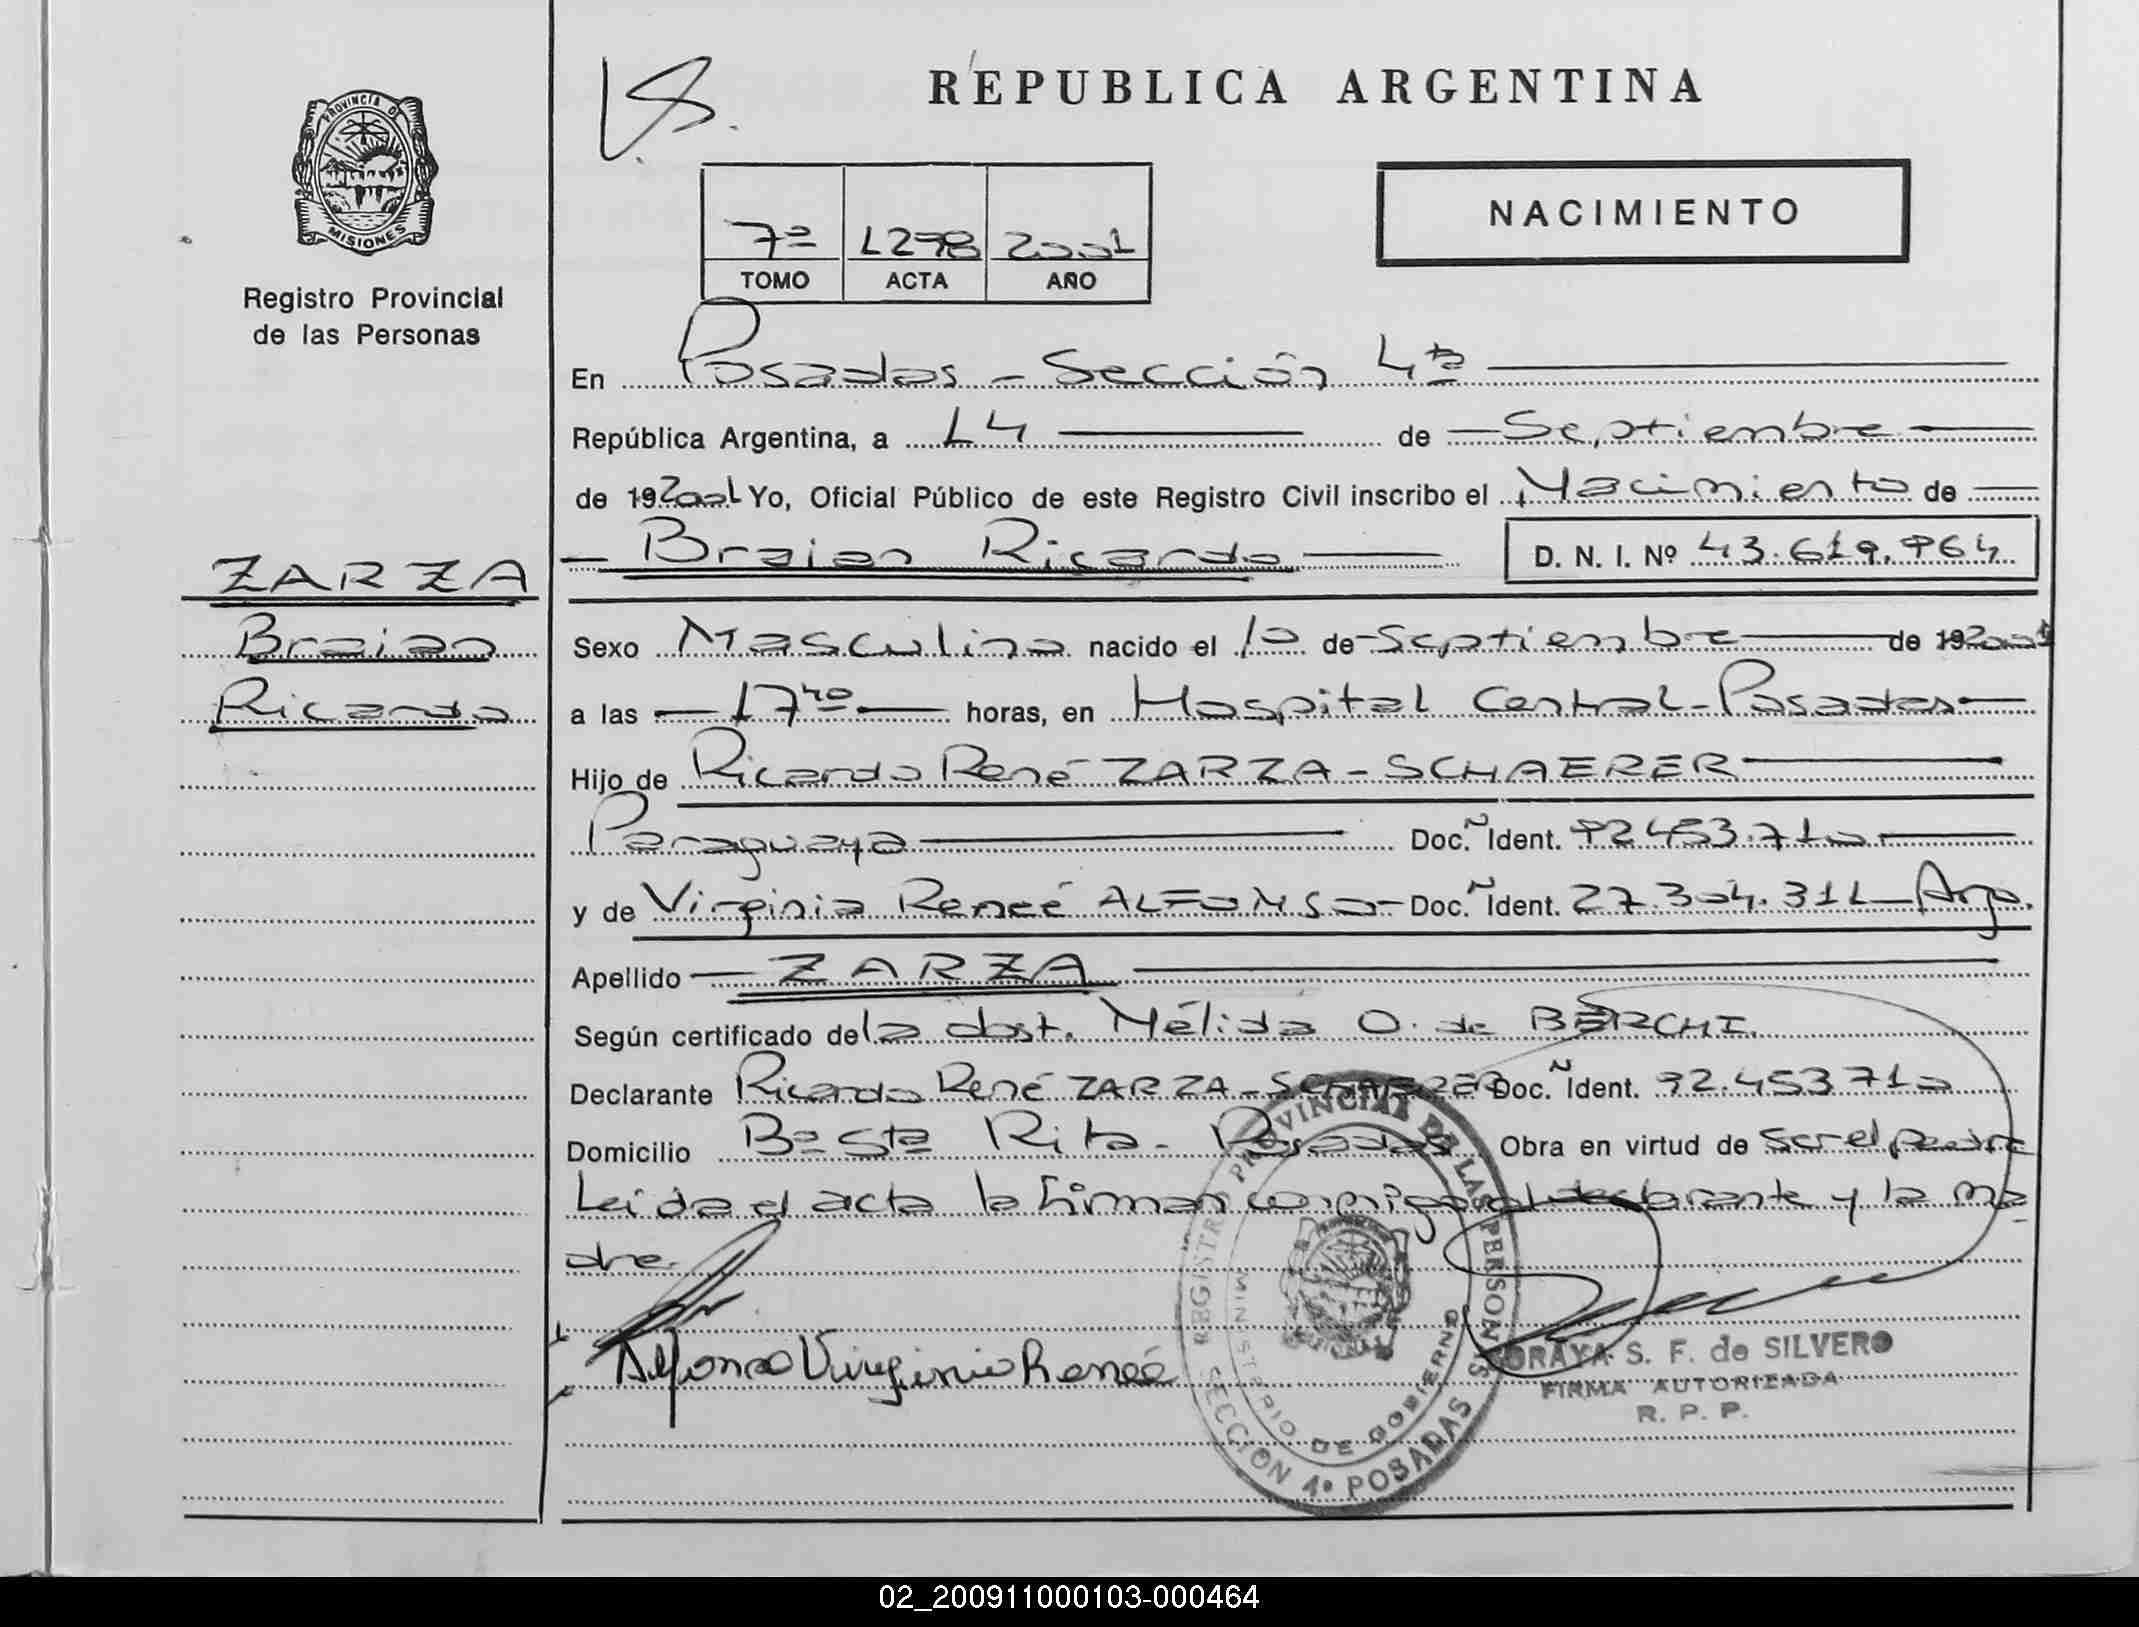 REPUBLICA ARGENTINA
PROVINCIA DE
MISIONES
Registro Provincial
de las Personas
NACIMIENTO
7º 1278 2001
TOMO ACTA AÑO
En Posadas - Sección 4ta
República Argentina, a 14 de Septiembre
de 19 2001 Yo, Oficial Público de este Registro Civil inscribo el Nacimiento de
Braian Ricardo D. N. I. Nº 43.619.964
ZARZA
Braian
Ricardo
Sexo Masculino nacido el 10 de Septiembre de 19 2001
a las 17 40 horas, en Hospital Central - Posadas
Hijo de Ricardo René ZARZA - SCHAERER
Paraguaya Doc. Ñ Ident. 92.453.710
y de Virginia Reneé ALFONSO - Doc. Ñ Ident. 27.304.311 - Arg.
Apellido ZARZA
Según certificado de la obst. Nélida O. de BERCHI.
Declarante Ricardo René ZARZA - SCHAERER Doc. Ñ Ident. 92.453.710
Domicilio Bº Sta Rita - Posadas Obra en virtud de Ser el padre
Leida el acta la firman conmigo el declarante y la ma
dre.
Alfonso Virginia Reneé
REGISTRO PROVINCIAL DE LAS PERSONAS
MINISTERIO DE GOBIERNO
SECCION 4º POSADAS
SORAYA S. F. de SILVERO
FIRMA AUTORIZADA
R. P. P.
02_200911000103-000464